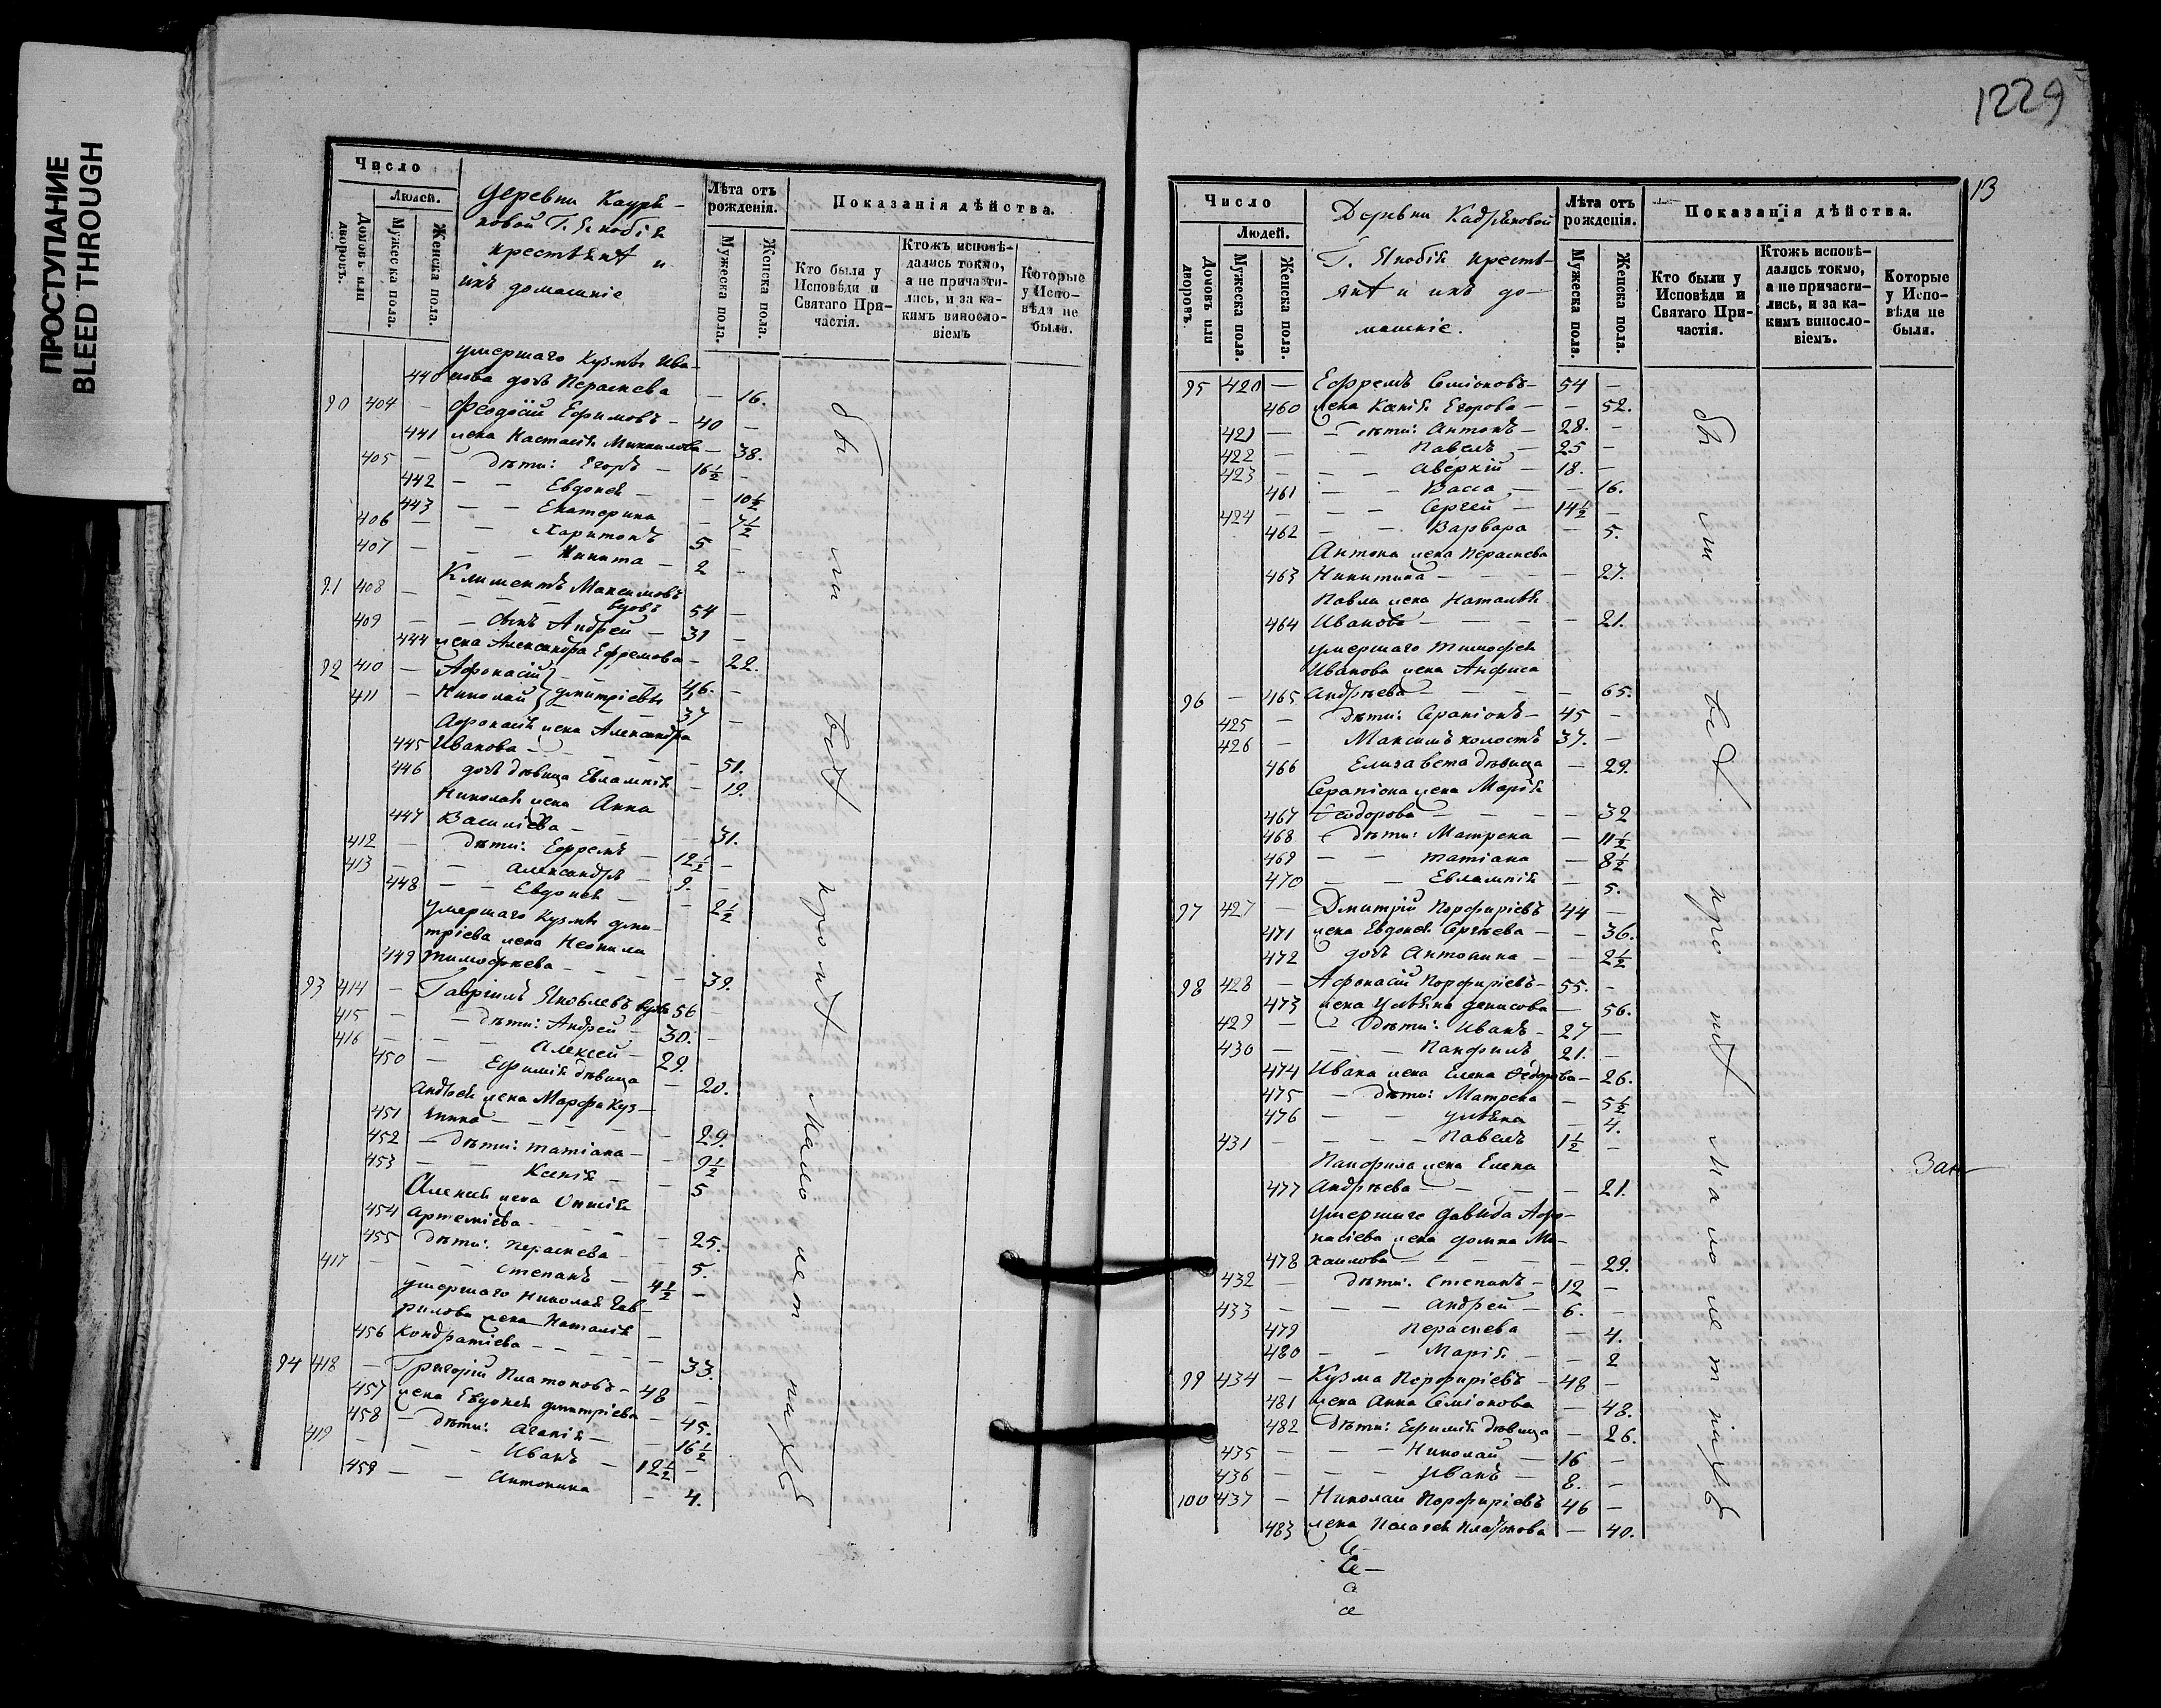 ПРОСТУПАНИЕ
BLEED THROUGH
Число
Людей.
Домовъ или дворовъ.
Мужеска пола.
Женска пола.
Деревни Кадря-
новой Г. Якобія
крестьянъ и
ихъ домашніе
Лѣта отъ рожденія.
Мужеска пола.
Женска пола.
Показанія дѣйства.
Кто были у Исповѣди и Святаго При-частія.
Ктожъ исповѣ-дались токмо, а не причасти-лись, и за ка-кимъ винословіемъ
Которые у Испо-вѣди не были.
умершаго Кузмы Ива-
440 нова дочь Параскева — 16.
90 404 — Феодосій Ефимовъ — 40 —
441 жена Настасія Михаилова — 38.
405 — дѣти: Егоръ — 16½ —
442 — — Евдокія — — 10½
443 — — Екатерина — 7½
406 — — Харитонъ 5 —
407 — — — Никита — 2 —
91 408 — Климентъ Максимовъ
— — — вдовъ 54 —
409 — — сынъ Андрей — 31 —
444 жена Александра Ефремова — 22.
92 410 — Афонасій — — 46. —
411 — Николай } Дмитріевы 37 —
Афонасія жена Александра
445 Иванова — — — — 51.
446 дочь дѣвица Евлампія — 19.
Николая жена Анна
447 Василіева — — — 31.
412 — дѣти: Ефремъ — 12½ —
413 — — Александръ — 9. —
448 — — Евдокія — — 2½
умершаго Кузмы Дми-
тріева жена Неонила
449 Тимофѣева — — — — 39.
93 414 — Гавріилъ Яковлевъ вдовъ 56 —
415 — — дѣти: Андрей — 30. —
416 — — — Алексей — 29.
450 — Ефимія дѣвица — 20.
Андрея жена Марфа Куз-
451 мина — — — — 29.
452 — дѣти: Татіана — — 9½
453 — — Ксенія — — 5
Алексея жена
454 Артеміева — — — 25.
455 дѣти: Параскева — — 5.
417 — — — Степанъ — 4½ —
умершаго Николая Гав-
рилова жена Наталія —
456 Кондратіева — — — — 33.
94 418 — Григорій Платоновъ — 48 —
457 жена Евдокія Дмитріева — 45.
458 — дѣти: Агапія — — 16½
419 — — — Иванъ — 12½ —
459 — — Антонина — 4.
были вси кромѣ малолетнихъ
1229
13
Число
Людей.
Домовъ или дворовъ.
Мужеска пола.
Женска пола.
Деревни Кадряновой
Г. Якобія кресть-
янъ и ихъ до-
машніе.
Лѣта отъ рожденія.
Мужеска пола.
Женска пола.
Показанія дѣйства.
Кто были у Исповѣди и Святаго При-частія.
Ктожъ исповѣ-дались токмо, а не причасти-лись, и за ка-кимъ винословіемъ.
Которые у Испо-вѣди не были.
95 420 — Ефремъ Семіоновъ — 54 —
460 жена Ксенія Егорова — — 52.
421 — — дѣти: Антонъ — 28. —
422 — — Павелъ — 25 —
423 — — — Аверкій — 18. —
461 — — Васса — — 16.
424 — — — Сергей — 14½ —
462 — — Варвара — 5.
Антона жена Параскева
463 Никитина — — — — 27.
Павла жена Наталія
464 Иванова — — — — 21.
умершаго Тимофея
Иванова жена Анфиса
96 — 465 Андрѣева — — — — 65.
425 — дѣти: Серапіонъ — 45 —
426 — Максимъ холостъ 37. —
466 Елизавета дѣвица — 29.
Серапіона жена Марія
467 Ѳеодорова — — — — 32
468 дѣти: Матрена — 11½
469 — — Татіана — 8½
470 — — Евлампія — 5.
97 427 — Дмитрій Порфиріевъ 44 —
471 жена Евдокія Сергѣева — — 36.
472 дочь Антонина — — 2½
98 428 — Афонасій Порфиріевъ — 55. —
473 жена Уліяна Денисова — 56.
429 — — дѣти: Иванъ — 27 —
430 — — — Панфилъ 21. —
474 Ивана жена Елена Ѳедорова — 26.
475 — дѣти: Матрена — 5½
476 — — Уліяна — 4.
431 — — — — Павелъ 1½ —
Панфила жена Елена
477 Андрѣева — — — — 21.
умершаго Давида Афо-
насіева жена Домна Ми-
478 хаилова — — — — 29.
432 — дѣти: Степанъ — 12 —
433 — — — Андрей — 6. —
479 Параскева — 4.
480 — — Марія — — 2
99 434 — Кузма Порфиріевъ — 48 —
481 жена Анна Семіонова — 48.
482 дѣти: Ефимія дѣвица — 26.
435 — — — Николай — 16 —
436 — — — Иванъ — 8. —
100 437 — Николай Порфиріевъ 46 —
483 жена Палагея Платонова — 40.
были вси кромѣ малолетнихъ